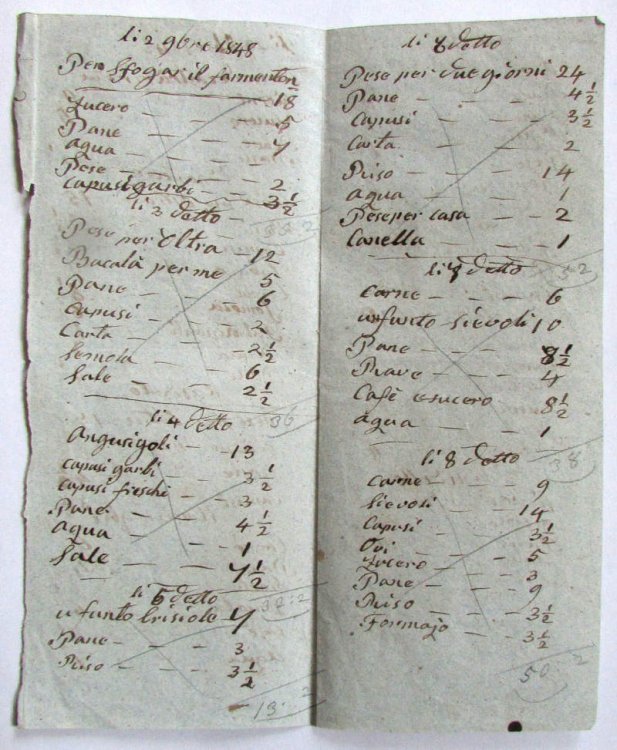 li 2 9bre 1848
Per sfogar il formenton
18
Zucero — — — 5
Pane — — — 7
agua — — —
Pese — — — 2
Capusi garbi — — 3 1/2
38:2
li 3 detto —
Pese per Oltra — 12
Bacalà per me 5
Pane — — — 6
Capusi — — 2
Carta — — — 2 1/2
Semola — — 6
Sale — — — 2 1/2
36
li 4 detto
Angusigoli — — 13
Capusi garbi — 3 1/2
capusi freschi — 3
Pane — — — 4 1/2
agua — — — 1
Sale — — — 7 1/2
32:2
li 5 detto
un funto Grisiole 7
Pane — — 3
Riso — — — 3 1/2
13:2
li 6 detto
Pese per due giorni 24
Pane — — — 4 1/2
Capusi — — — 3 1/2
Carta — — — 2
Riso — — — 14
agua — — — 1
Pese per casa — 2
Canella — — — 1
:2
li 7 detto
Carne — — — 6
un funto Sievoli 10
Pane — — — 8 1/2
Rave — — — 4
Cafè e sucero 8 1/2
agua — — — 1
38
li 8 detto
Carne — — — 9
Sievoli — — — 14
Capusi — — — 3 1/2
Ovi — — — 5
Zucero — — — 3
Pane — — — 9
Riso — — — 3 1/2
Formajo — — — 3 1/2
50:2